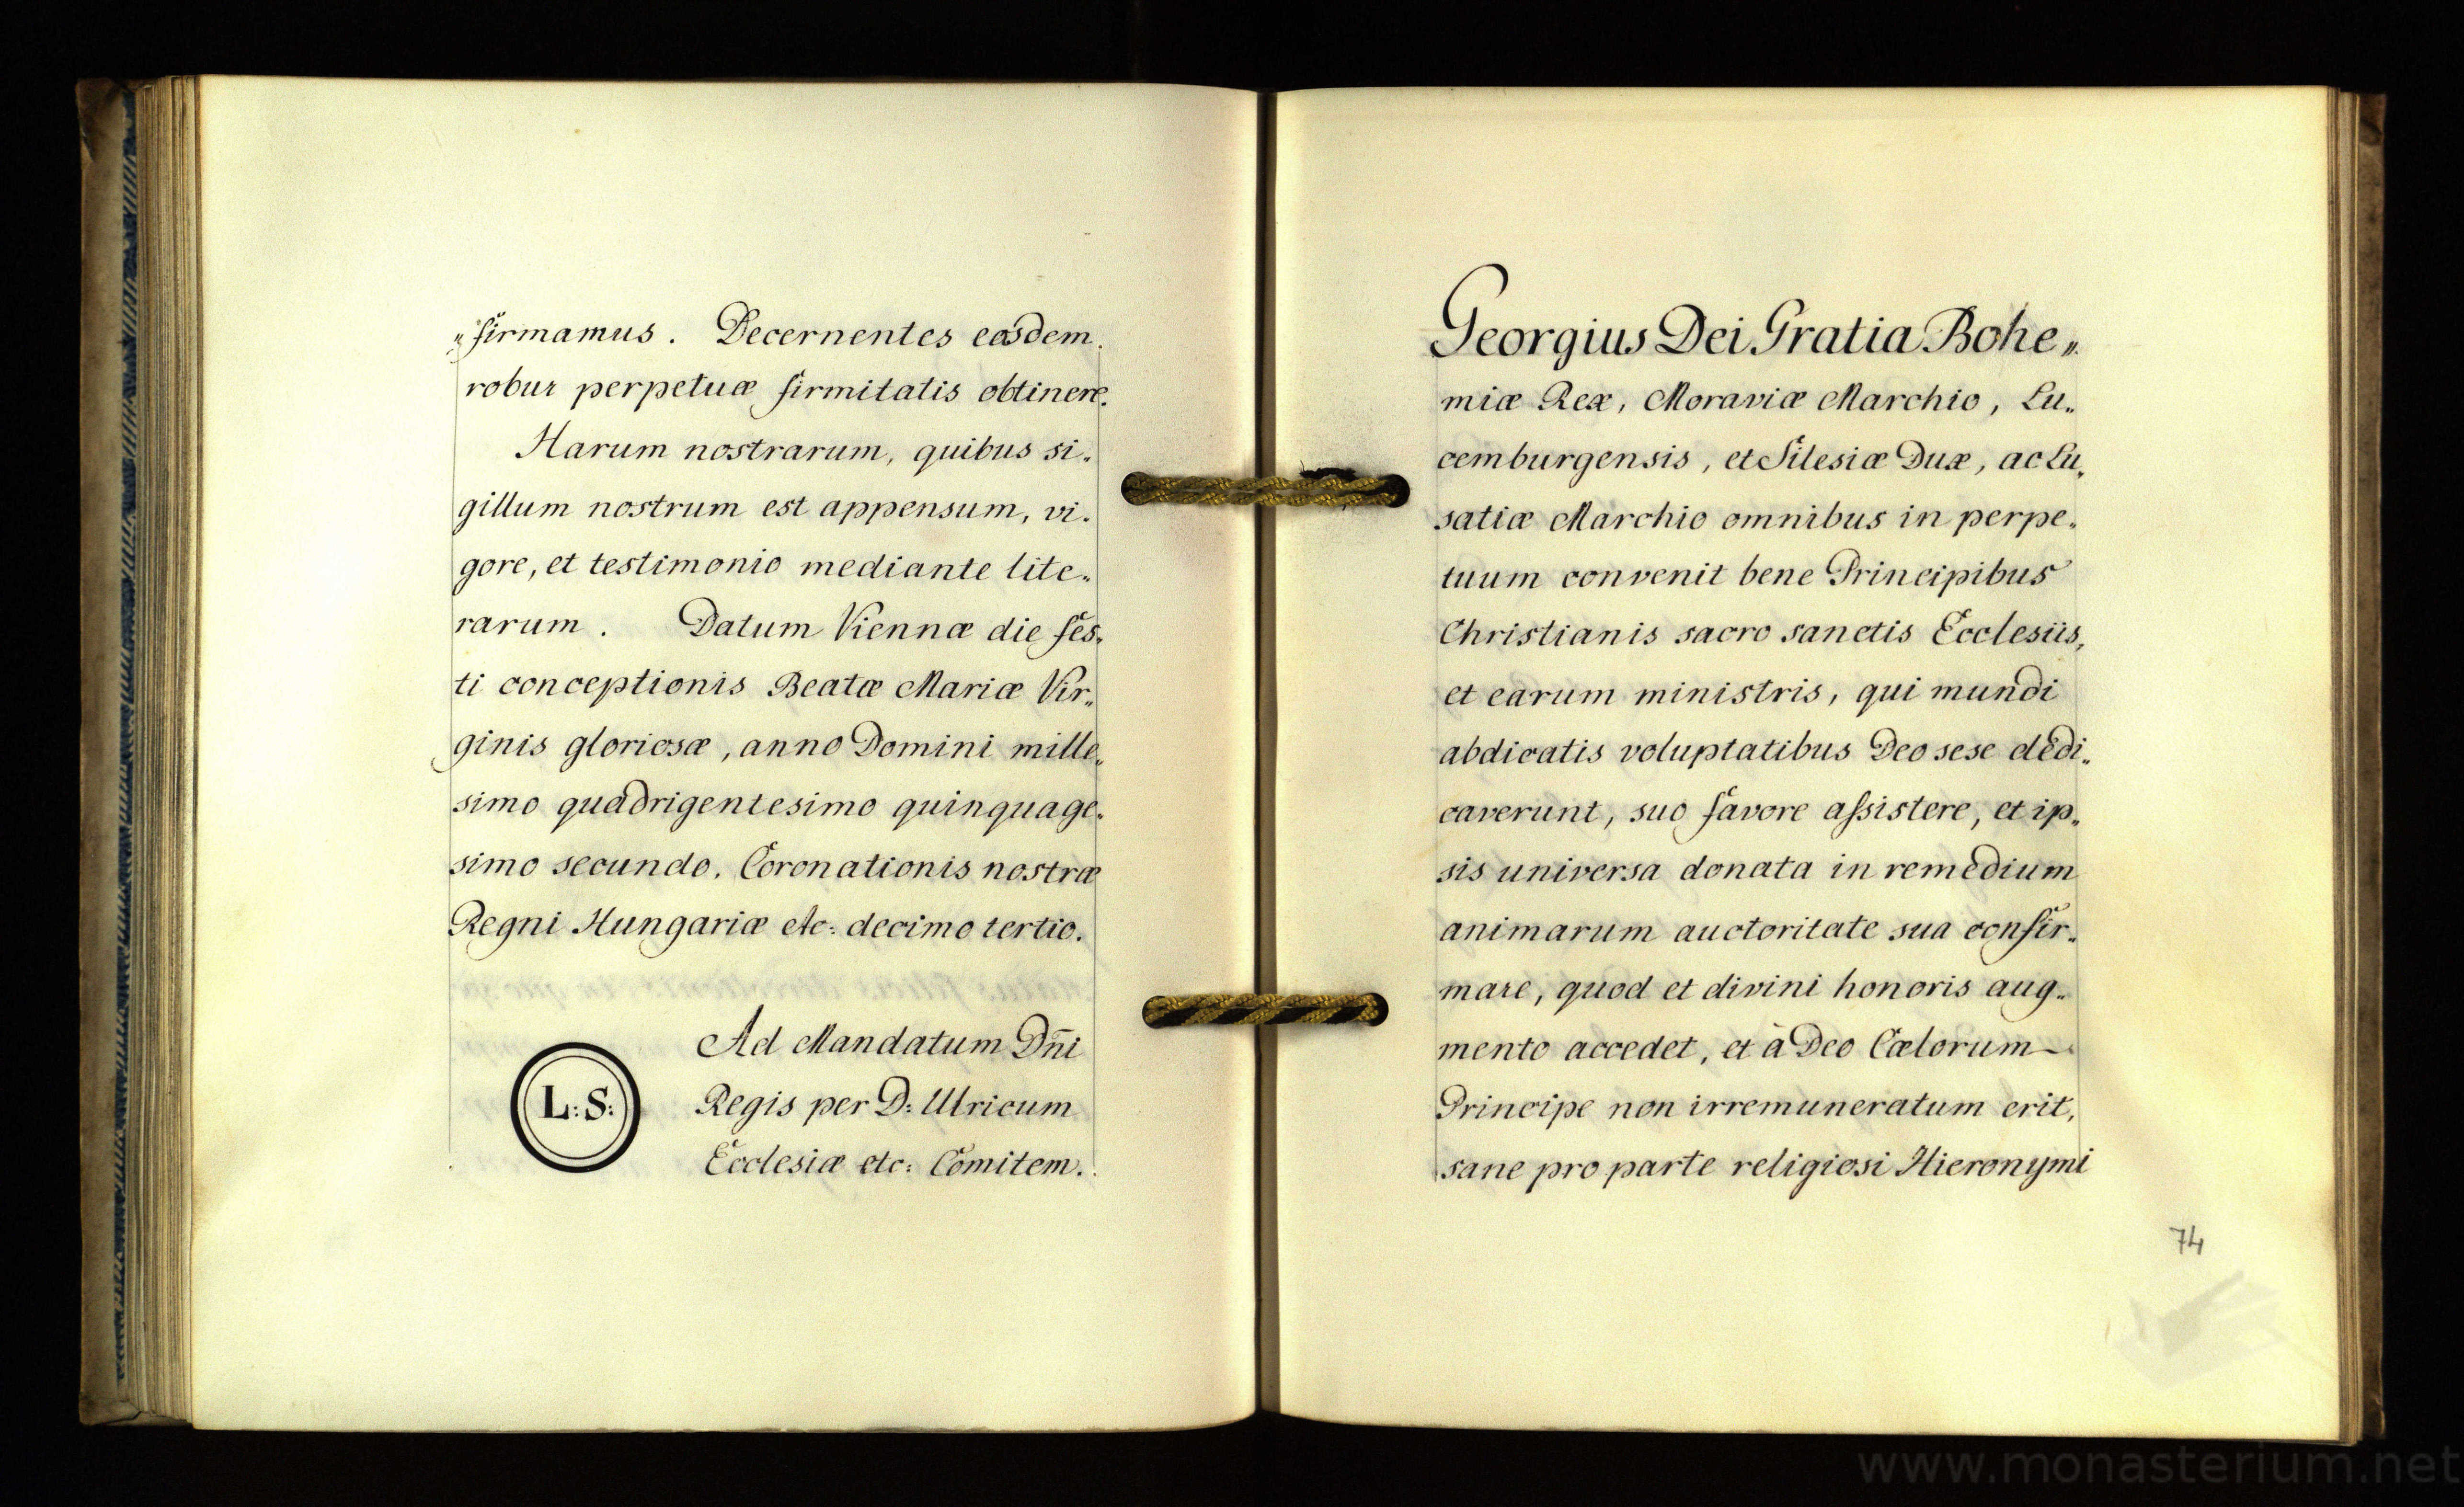 „firmamus. Decernentes eosdem
robur perpetuæ firmitatis obtinere.
Harum nostrarum, quibus si„
gillum nostrum est appensum, vi„
gore, et testimonio mediante lite„
rarum. Datum Viennæ die fes„
ti conceptionis Beatæ Mariæ Vir„
ginis gloriosæ, anno Domini mille„
simo quadrigentesimo quinquage„
simo secundo. Coronationis nostræ
Regni Hungariæ etc: decimo tertio.
L: S:
Ad Mandatum Dn̄i
Regis per D: Ulricum
Ecclesiæ etc: Comitem.
Georgius Dei Gratia Bohe„
miæ Rex, Moraviæ Marchio, Lu„
cemburgensis, et Silesiæ Dux, ac Lu„
satiæ Marchio omnibus in perpe„
tuum convenit bene Principibus
Christianis sacro sanctis Ecclesiis,
et earum ministris, qui mundi
abdicatis voluptatibus Deo sese dedi„
caverunt, suo favore aſsistere, et ip„
sis universa donata in remedium
animarum auctoritate sua confir„
mare, quod et divini honoris aug„
mento accedet, et à Deo Cœlorum
Principe non irremuneratum erit,
sane pro parte religiosi Hieronymi
74
www.monasterium.net